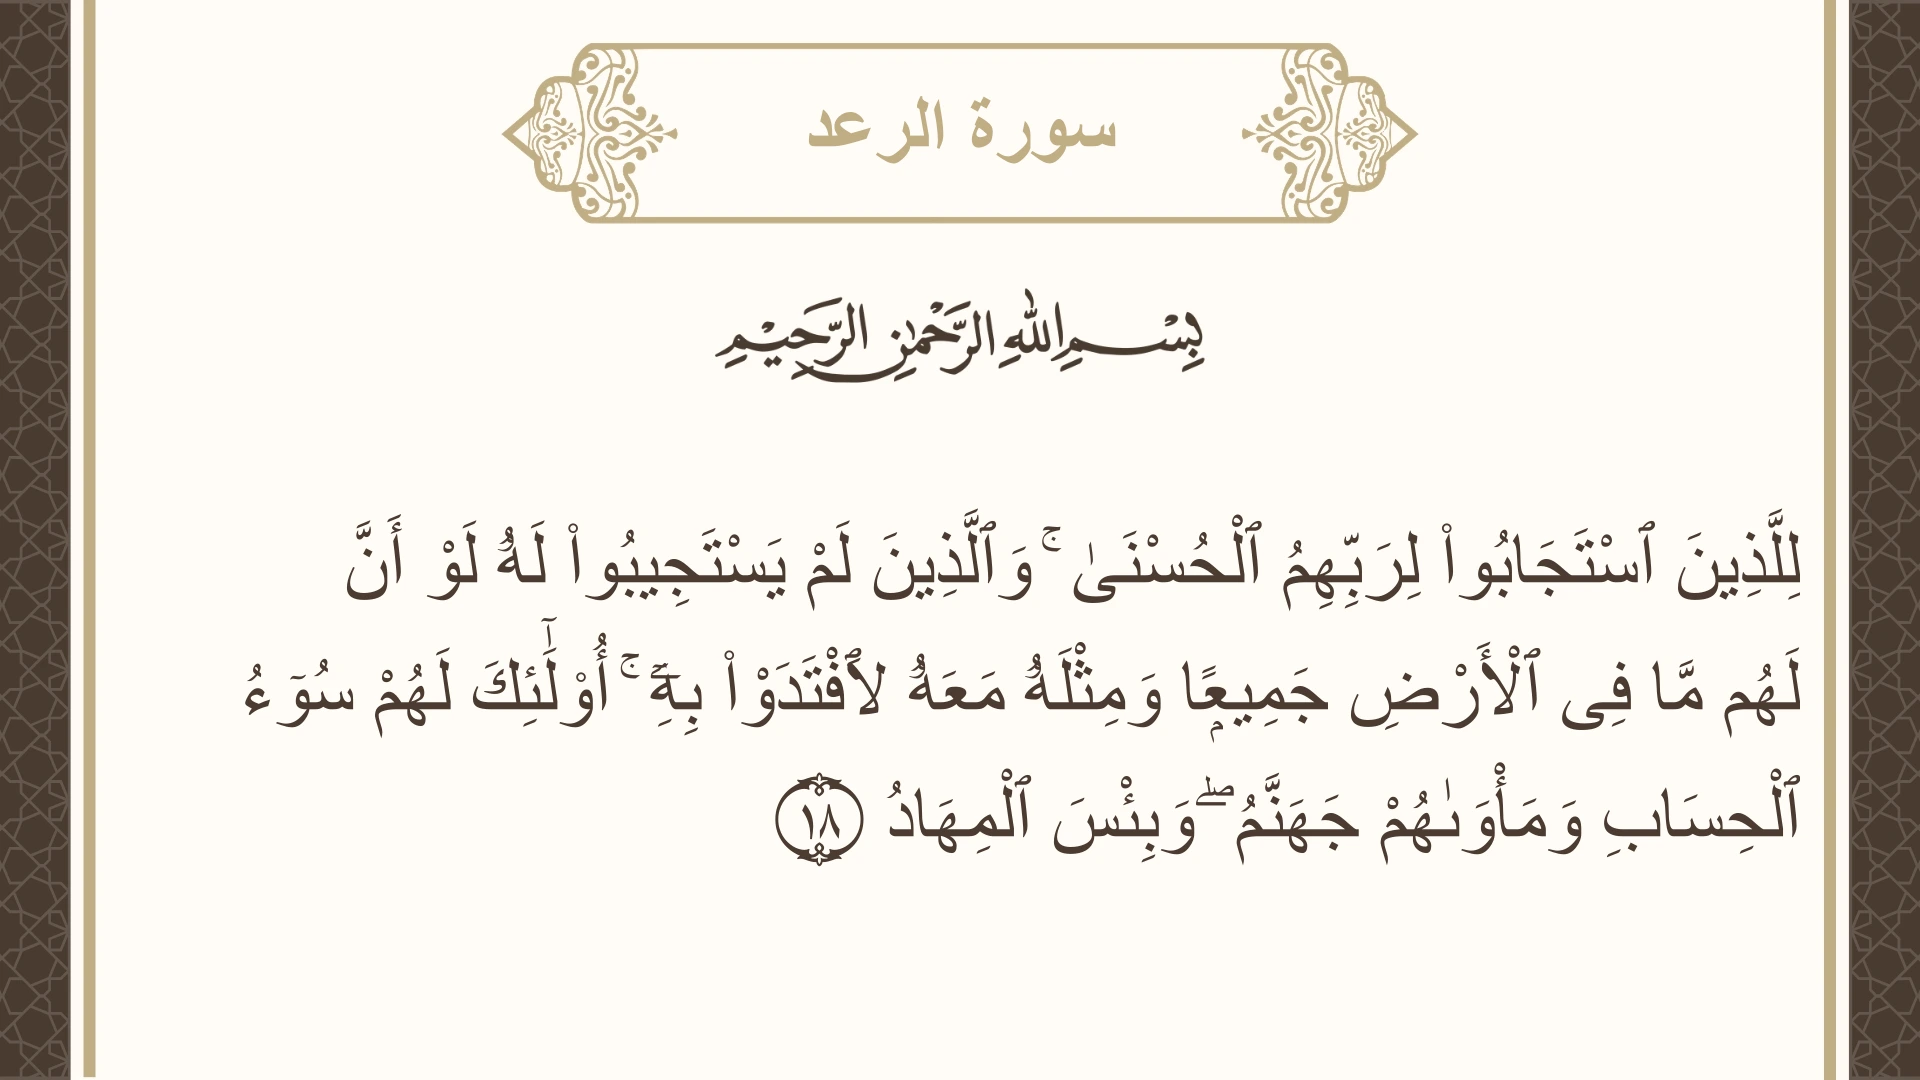 سورة الرعد
بِسْمِ اللهِ الرَّحْمٰنِ الرَّحِيْمِ
لِلَّذِينَ ٱسْتَجَابُوا۟ لِرَبِّهِمُ ٱلْحُسْنَىٰ ۚ وَٱلَّذِينَ لَمْ يَسْتَجِيبُوا۟ لَهُۥ لَوْ أَنَّ
لَهُم مَّا فِى ٱلْأَرْضِ جَمِيعًۭا وَمِثْلَهُۥ مَعَهُۥ لَٱفْتَدَوْا۟ بِهِۦٓ ۚ أُو۟لَـٰٓئِكَ لَهُمْ سُوٓءُ
ٱلْحِسَابِ وَمَأْوَىٰهُمْ جَهَنَّمُ ۖ وَبِئْسَ ٱلْمِهَادُ ١٨